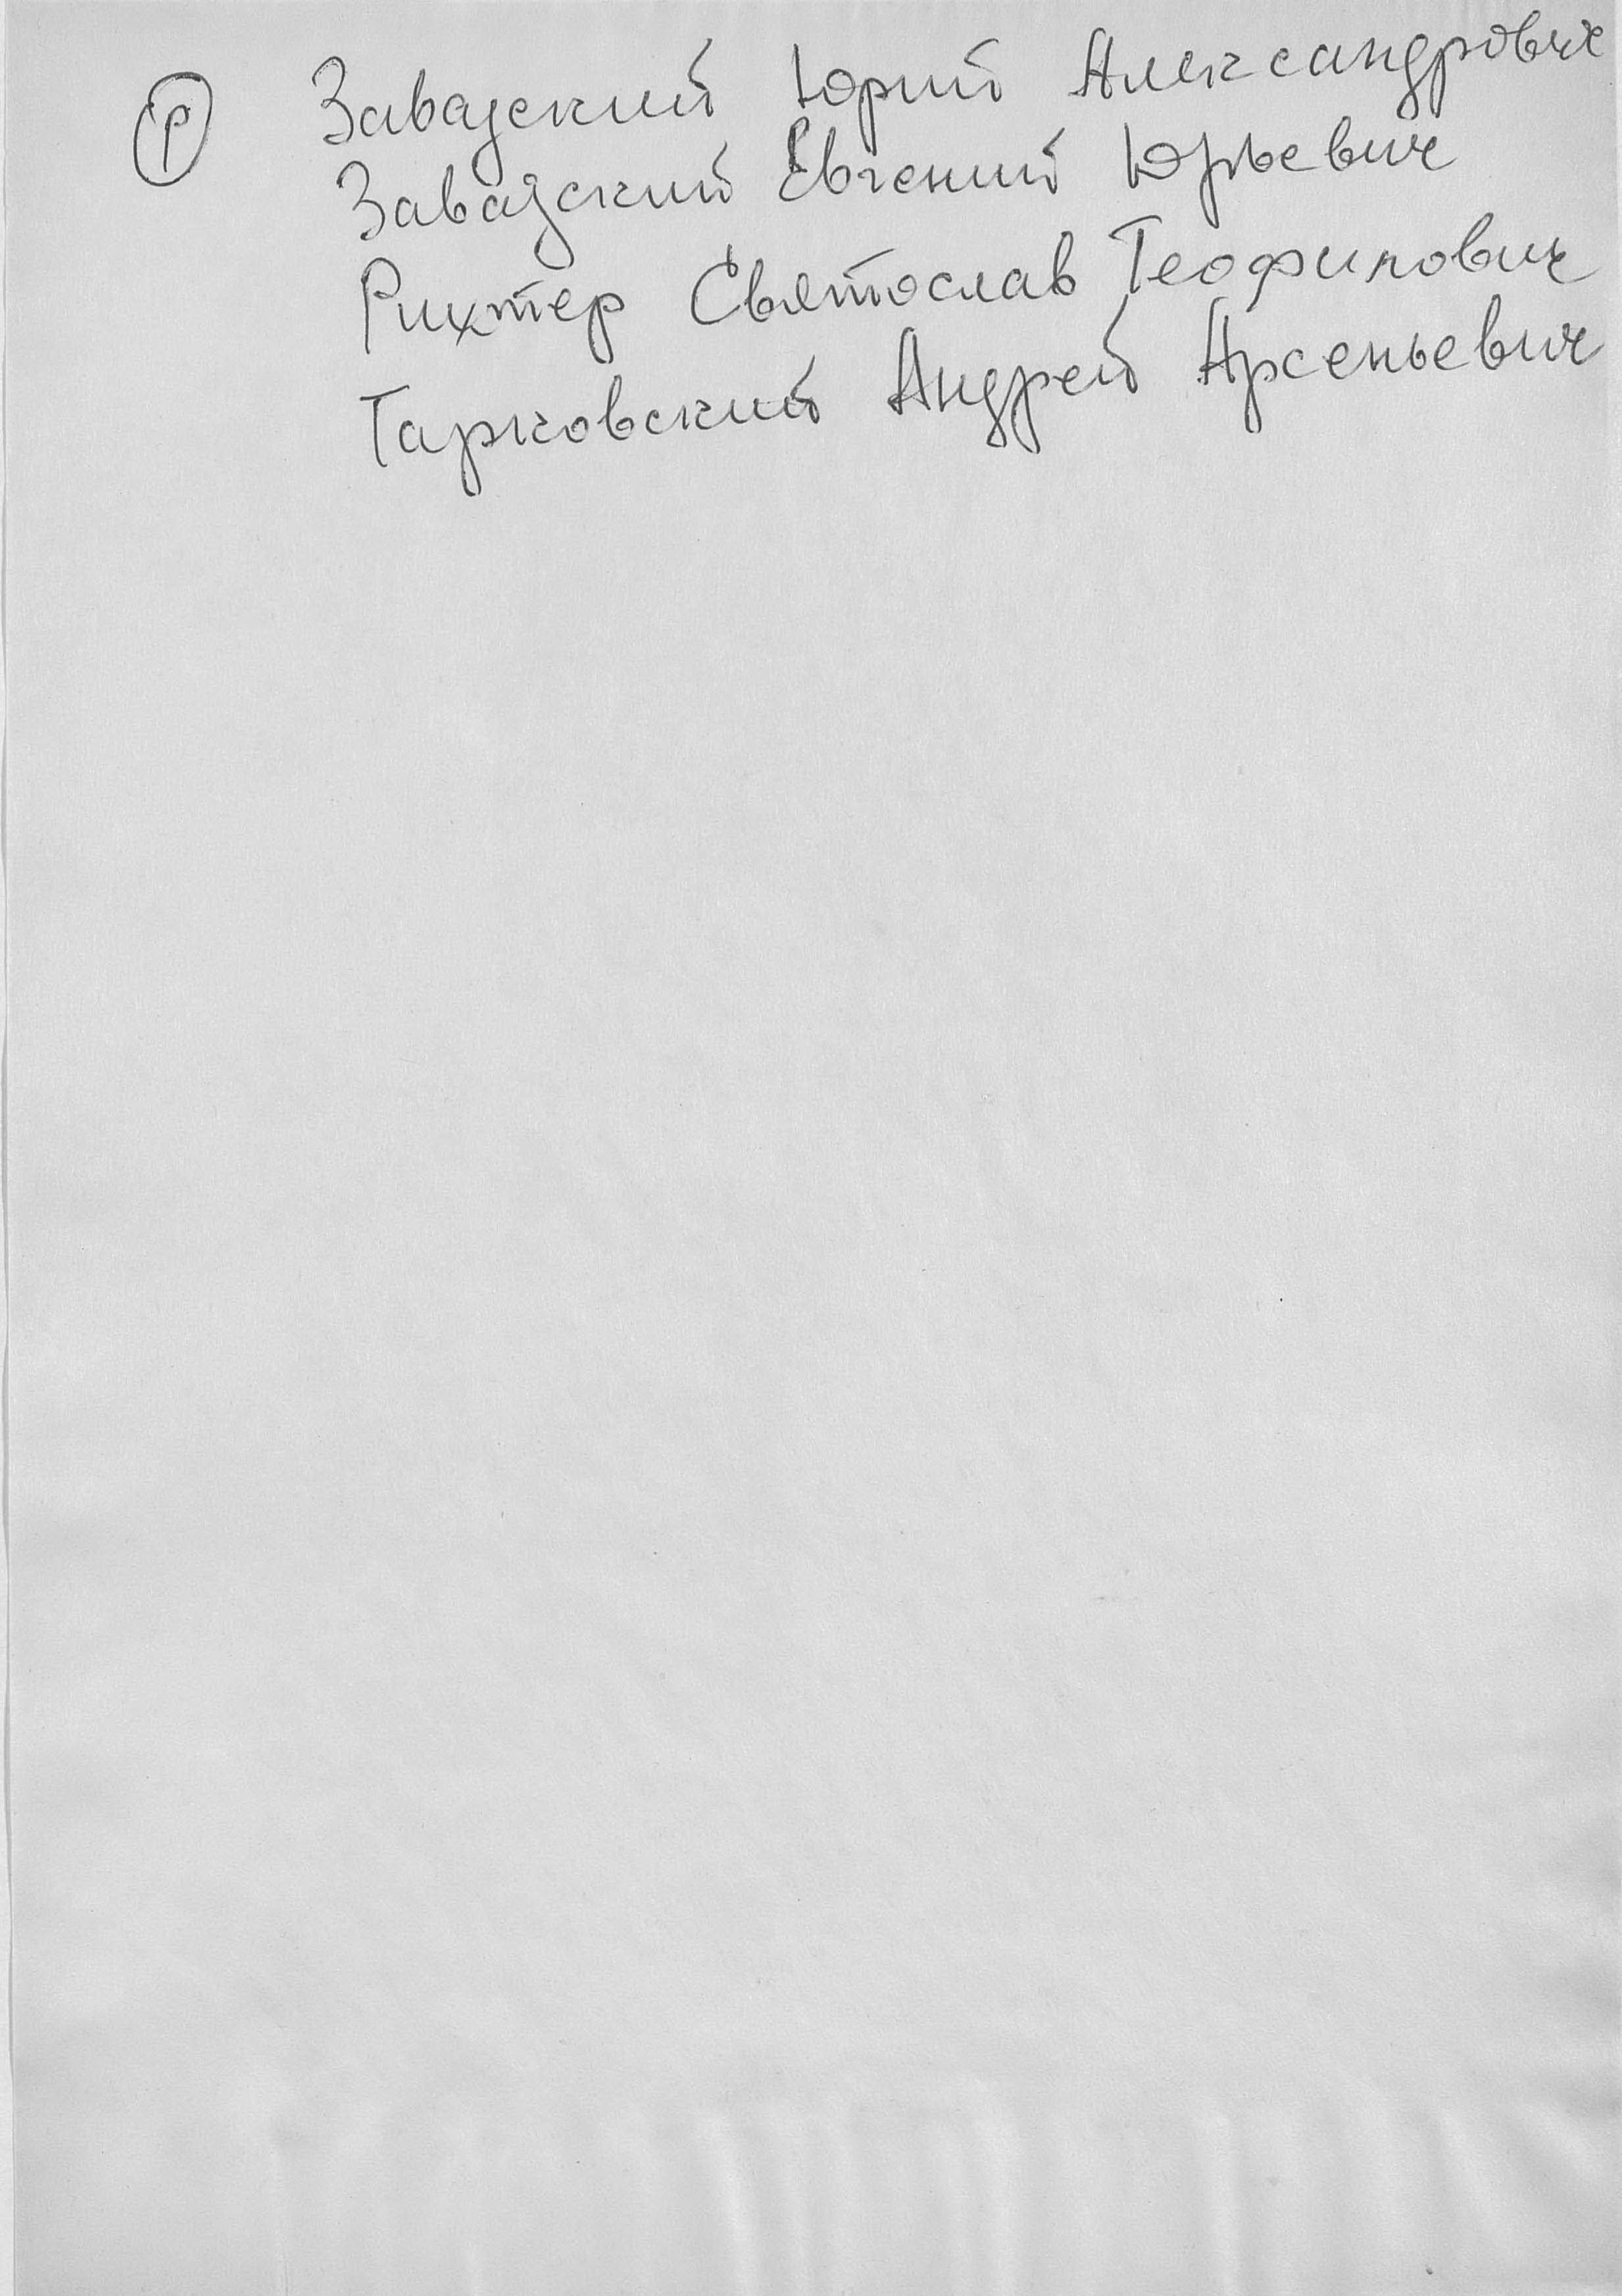 Р Завадский Юрий Александрович
Завадский Евгений Юрьевич
Рихтер Святослав Теофилович
Тарковский Андрей Арсеньевич